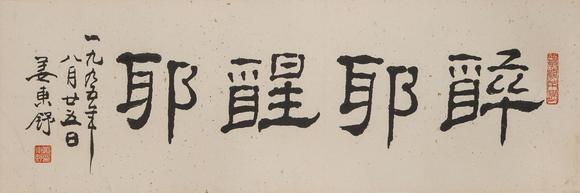 醉耶醒耶
一九九五年
八月廿五日
姜東舒